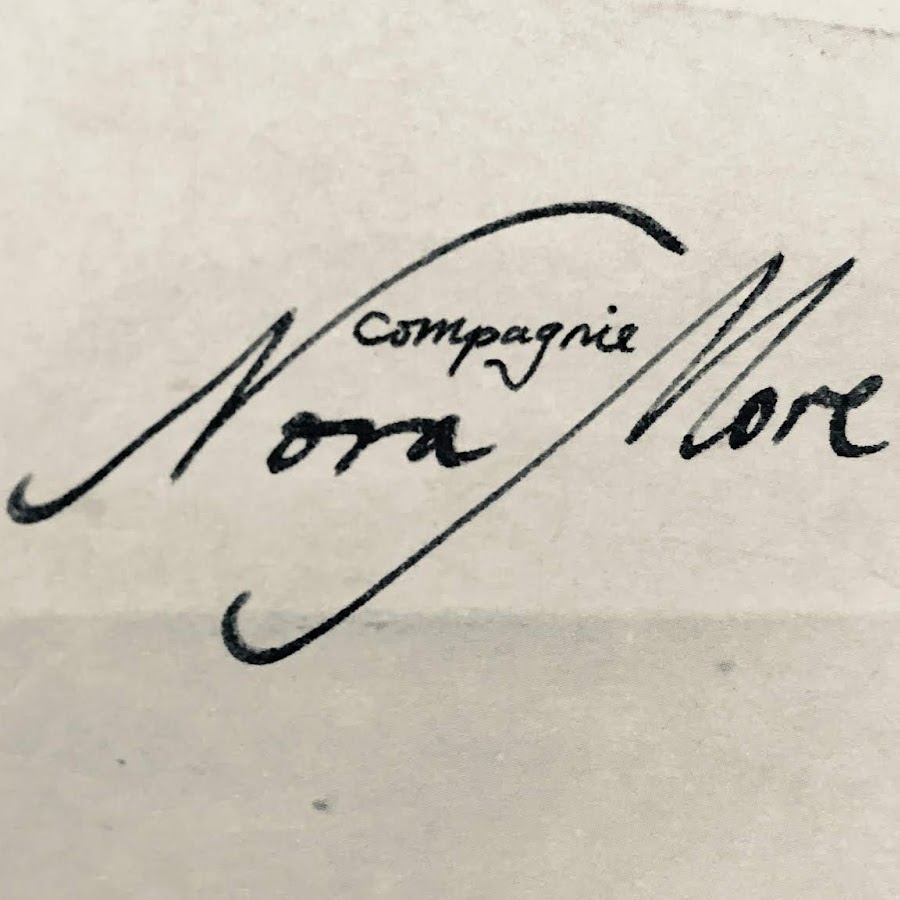 compagnie
Nora More